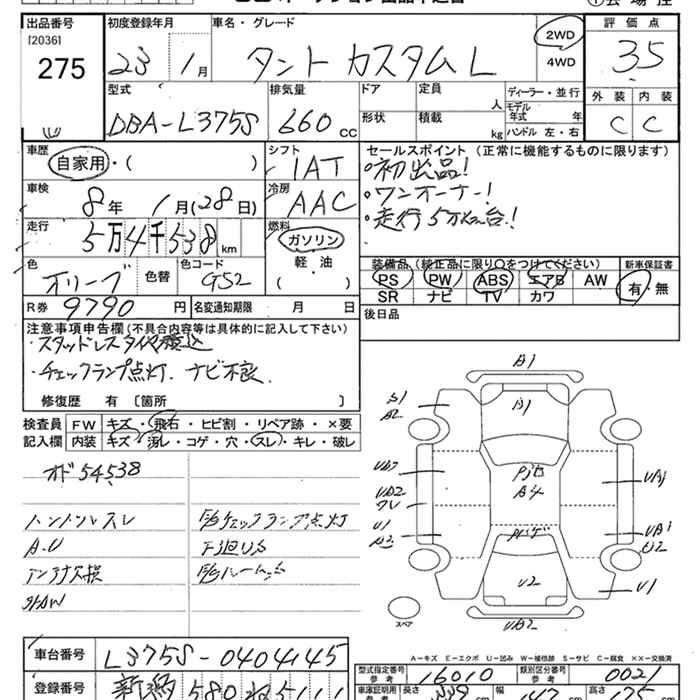 出品番号 初度登録年月 車名・グレード 評価点
[2036] 275 23 1月 タント カスタム L 2WD 4WD 3.5
型式 排気量 ドア 定員 人 ディーラー・並行 外装 内装
DBA-L375S 660 CC 形状 積載 kg モデル年式 年 ハンドル 左・右 C C
車歴 自家用・( ) シフト IAT セールスポイント (正常に機能するものに限ります)
・初出品!
車検 8年 1月(28日) 冷房 AAC ・ワンオーナー!
走行 5万4千538km 燃料 ガソリン 軽・油 ( ) ・走行5万km台!
色 オリーブ 色替 色コード G52 装備品 (純正品に限り○をつけてください) 新車保証書
PS PW ABS エアB AW 有・無
SR ナビ TV カワ
R券 9790円 名変通知期限 月 日 後日品
注意事項申告欄(不具合内容等は具体的に記入して下さい)
・スタッドレスタイヤ積込
・チェックランプ点灯. ナビ不良.
修復歴 有 〔箇所 〕
検査員 FW キズ・飛石・ヒビ割・リペア跡・×要
記入欄 内装 キズ・汚レ・コゲ・穴・スレ・キレ・破レ
オド 54,538
ハンドルスレ F/Sチェックランプ点灯
A.U F下廻りS
アンテナ欠損
B1
B1
U2
U1
スペア
A=キズ E=エクボ U=凹み W=補修跡 S=サビ C=腐食 ××=交換済
車台番号 L375S-0404145 型式指定番号 参考 16010 類別区分番号 参考 0021
登録番号 新潟 580 車庫証明用 参考 長さ cm 幅 cm 高さ